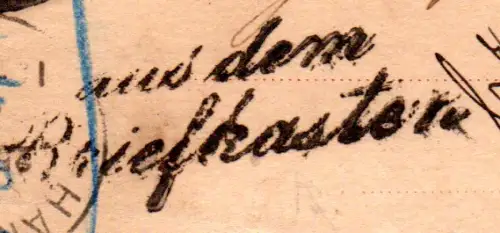 aus dem
Briefkasten
HA